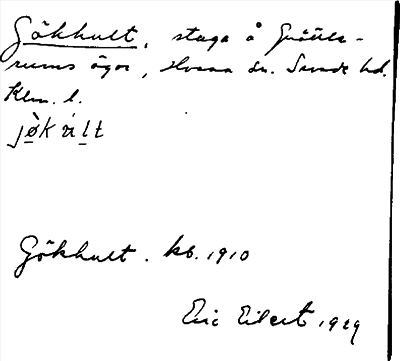 Gökhult, stuga å Gräfls-
rums ägor, Hossa sn. Sunde hd.
Klm. l.
jø̀kúlt
Gökhult. kb. 1910
Eric Eilert 1929